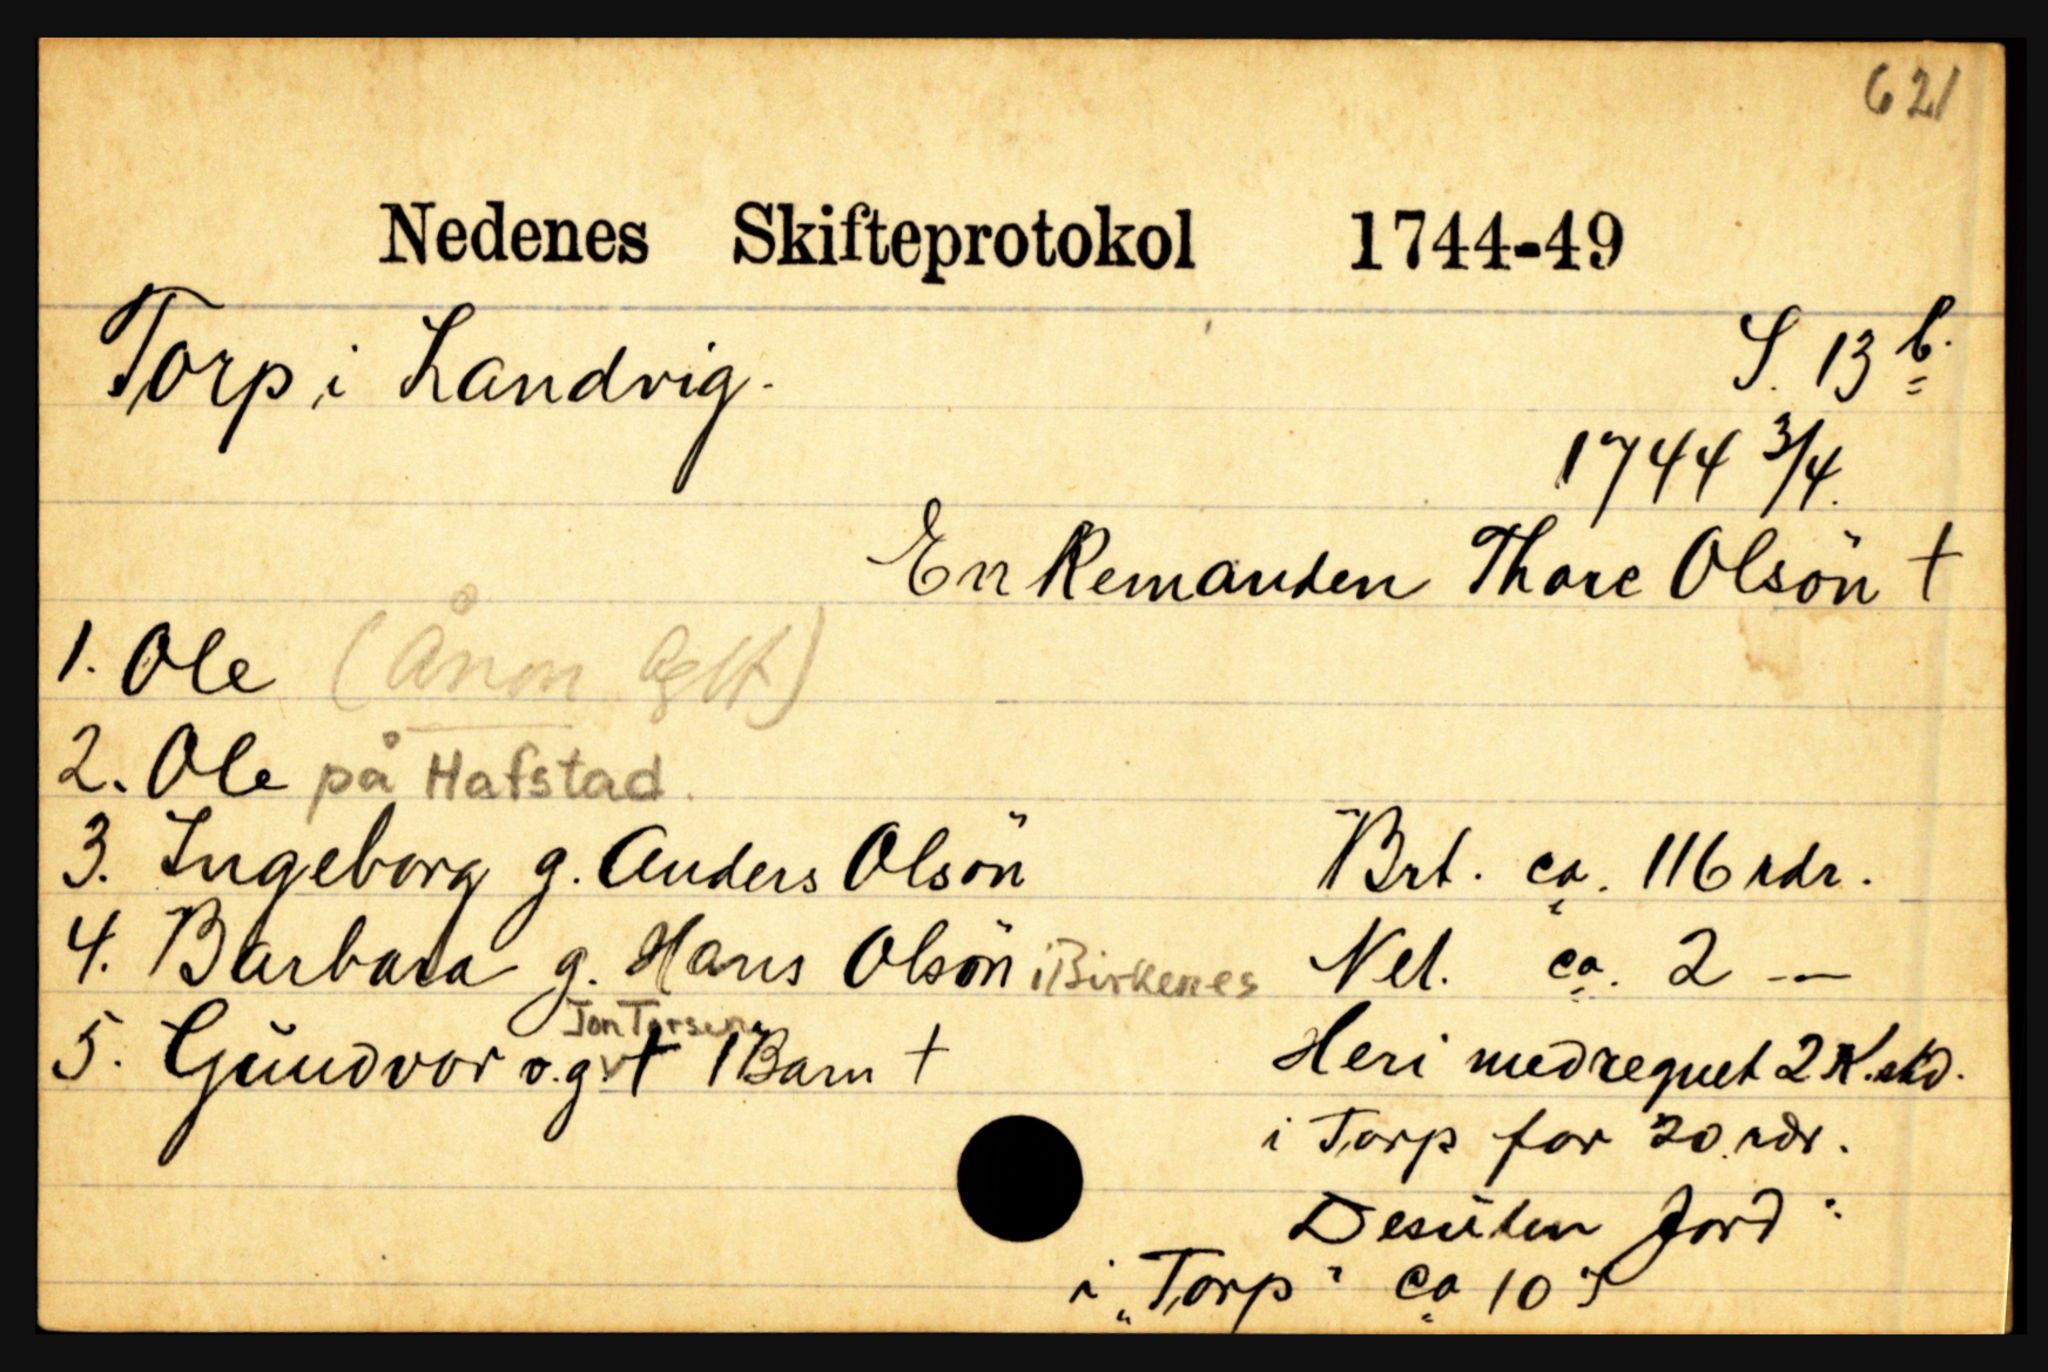 621
Nedenes Skifteprotokol 1744-49
Torp i Landvig. S. 13 b.
1744 3/4.
Enkemanden Thore Olsön †
1. Ole (Ånon
2. Ole på Hafstad.
3. Ingeborg g. Anders Olsön Brt. ca. 116 rdr.
4. Barbara g. Hans Olsön i Birkenes Net. ca. 2 —
Jon Torsen
5. Gundvor v.g. † 1 Barn † Heri medregnet 2 K.skd.
i Torp for 20 rdr.
Desuten Jord :
i „Torp" ca 10